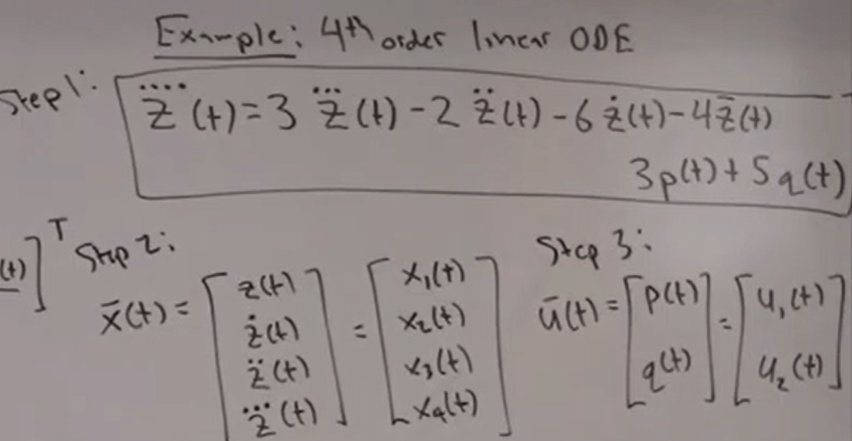 Example: 4th order linear ODE
Step 1:
z⃜(t) = 3 z⃛(t) - 2 z̈(t) - 6 ż(t) - 4 z̄(t)
3p(t) + 5q(t)
(t)]ᵀ
Step 2:
x̄(t) = [z(t) ż(t) z̈(t) z⃛(t)] = [x₁(t) x₂(t) x₃(t) x₄(t)]
Step 3:
ū(t) = [p(t) q(t)] = [u₁(t) u₂(t)]